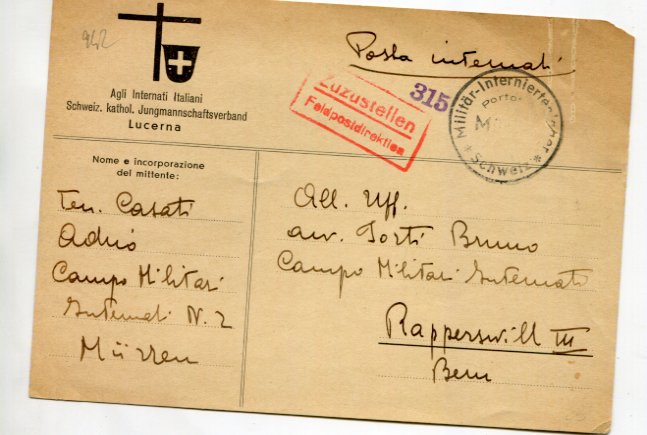 942
Agli Internati Italiani
Schweiz. kathol. Jungmannschaftsverband
Lucerna
Posta internati
Zuzustellen
Feldpostdirektion
315
Militär-Internierten
Porto-
* Schweiz *
Nome e incorporazione
del mittente:
Ten. Casati
Adrio
Campo Militari
Internati N. 2
Mürren
All. Uff.
avv. Torti Bruno
Campo Militari Internati
Rapperswill III
Bern